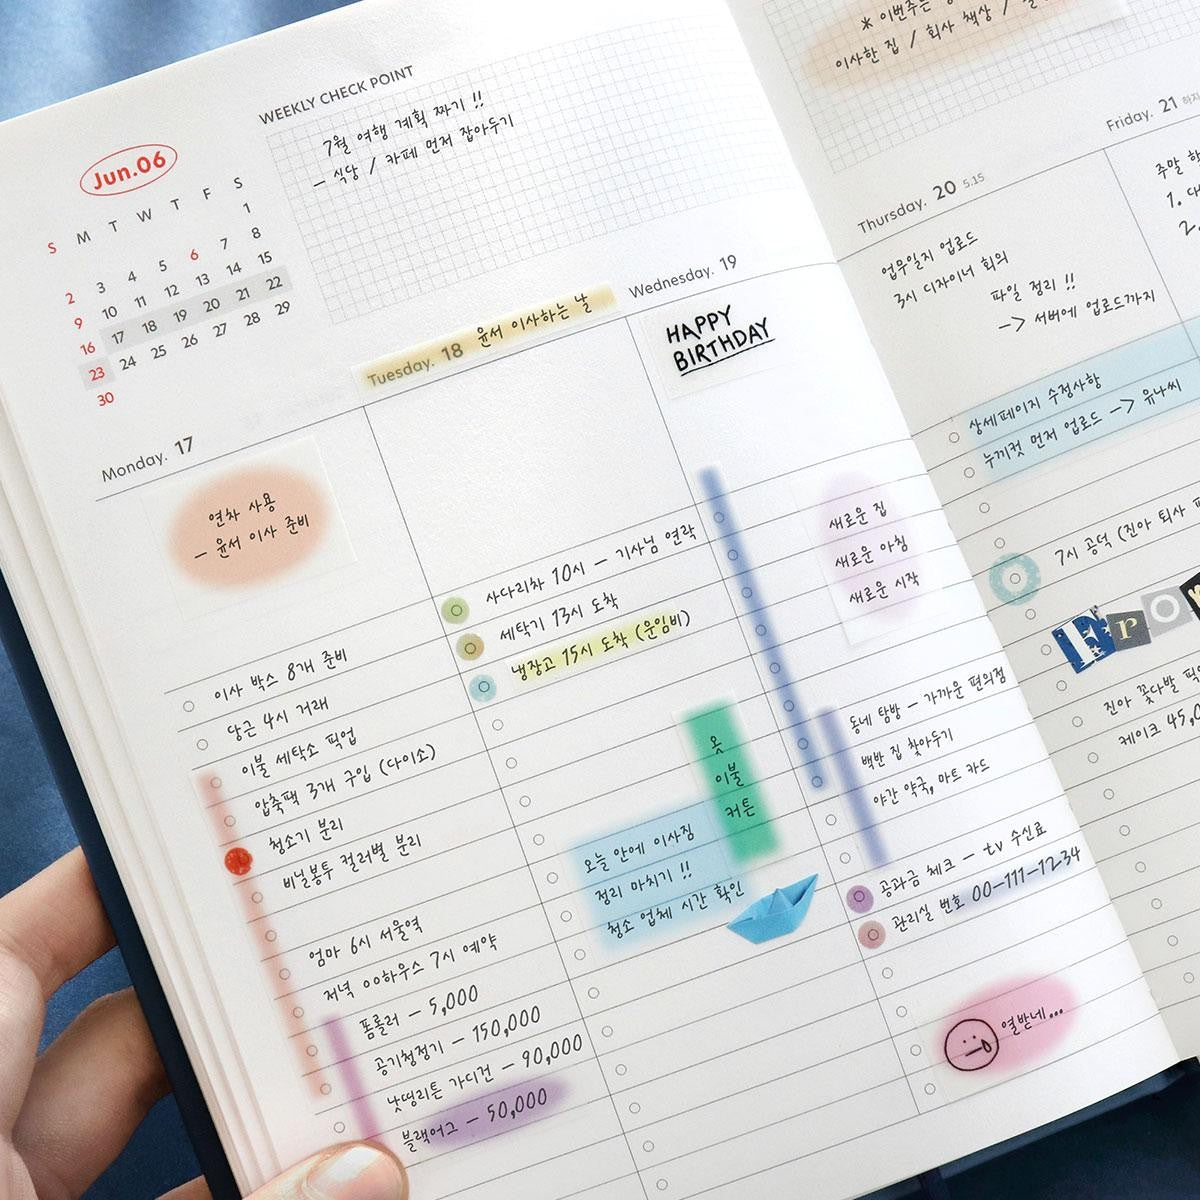 WEEKLY CHECK POINT
7월 여행 계획 짜기 !!
– 식당 / 카페 먼저 잡아두기
Jun.06
S M T W T F S
1
2 3 4 5 6 7 8
9 10 11 12 13 14 15
16 17 18 19 20 21 22
23 24 25 26 27 28 29
30
Monday. 17
연차 사용
– 윤서 이사 준비
이사 박스 8개 준비
당근 4시 거래
이불 세탁소 픽업
압축팩 3개 구입 (다이소)
청소기 분리
비닐봉투 컬러별 분리
엄마 6시 서울역
저녁 ㅇㅇ하우스 7시 예약
폼롤러 – 5,000
공기청정기 – 150,000
낫띵리튼 가디건 – 90,000
블랙어그 – 50,000
Tuesday. 18 윤서 이사하는 날
사다리차 10시 – 기사님 연락
세탁기 13시 도착
냉장고 15시 도착 (운임비)
옷
이불
커튼
오늘 안에 이사짐
정리 마치기 !!
청소 업체 시간 확인
Wednesday. 19
HAPPY
BIRTHDAY
새로운 집
새로운 아침
새로운 시작
동네 탐방 – 가까운 편의점
백반 집 찾아두기
야간 약국, 마트 카드
공과금 체크 – tv 수신료
관리실 번호 00-111-1234
열받네...
* 이번주는
이사한 집 / 회사 책상 /
Thursday. 20 5.15
업무일지 업로드
3시 디자이너 회의
파일 정리 !!
-> 서버에 업로드까지
상세페이지 수정사항
누끼컷 먼저 업로드 -> 유나씨
7시 공덕 (진아 퇴사
Fror
진아 꽃다발
케이크 45,0
Friday. 21 하지
주말
1.
2.